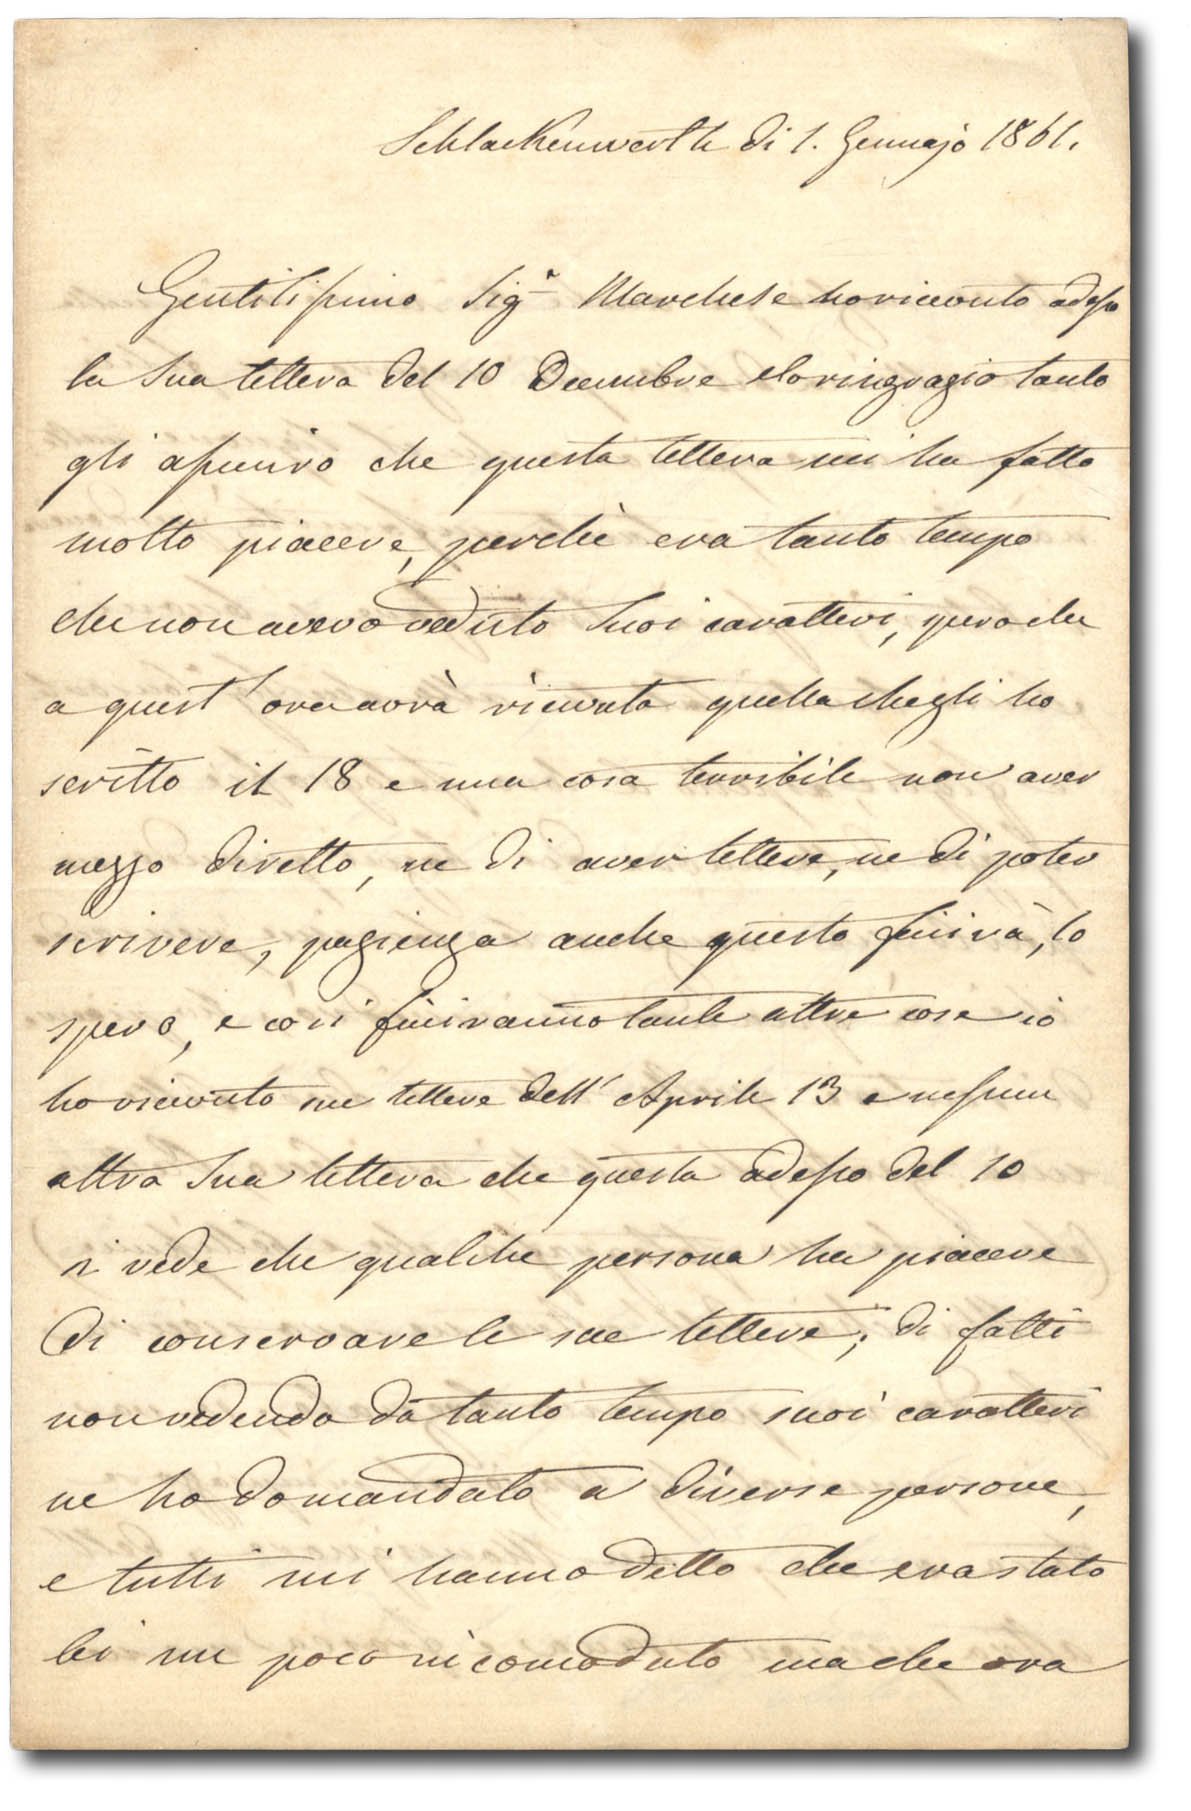 Schlackenwerth di 1. Gennajo 1861.
Gentilissimo Sigr Marchese ho ricevuto adesso
la Sua lettera del 10 Decembre e lo ringragio tanto
gli assicuro che questa lettera mi ha fatto
molto piacere, perchè era tanto tempo
che non avevo veduto Suoi caratteri, spero che
a quest' ora avrà ricevuta quella che gli ho
scritto il 18 e una cosa terribile non aver
mezzo diretto, ne di aver lettere, ne di poter
scrivere, pazienza anche questo finirà, lo
spero, e cosi finiranno tante altre cose io
ho ricevuto sue lettere dell' Aprile 13 e nessun
altra Sua lettera che questa adesso del 10
si vede che qualche persona ha piacere
di conservare le sue lettere; di fatti
non vedendo da tanto tempo suoi caratteri
ne ho domandato a diverse persone,
e tutti mi hanno detto che era stato
lei un poco incomodato ma che ora